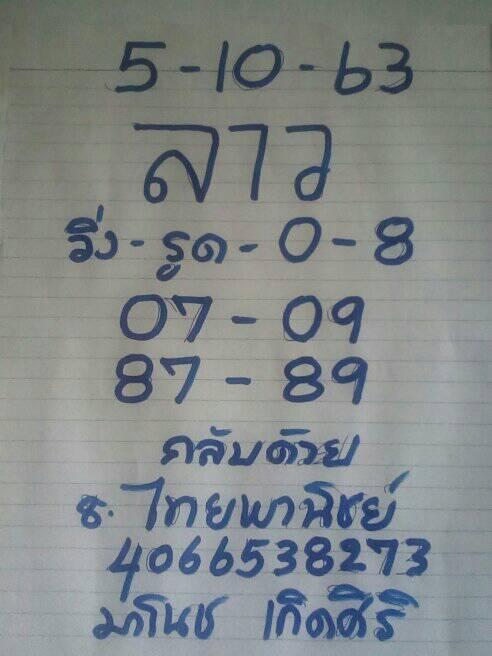 5-10-63
ลาว
วิ่ง-รูด-0-8
07-09
87-89
กลับด้วย
ธ.ไทยพานิชย์
4066538273
มาโนช เกิดศิริ